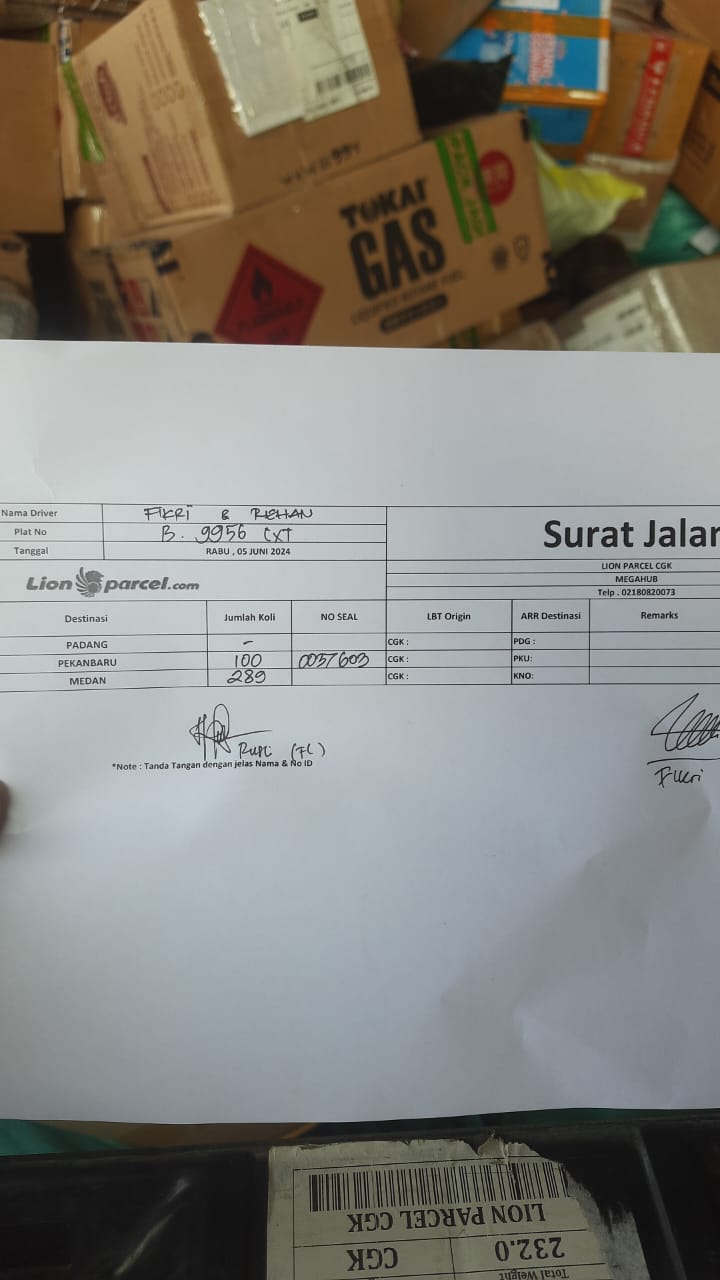 TOKAI
GAS
LIQUEFIED BUTANE FUEL
Nama Driver FIKRI & REHAN
Plat No B. 9956 CXT
Tanggal RABU , 05 JUNI 2024
Surat Jalan
LION PARCEL CGK
MEGAHUB
Telp . 02180820073
Lion parcel.com
Destinasi Jumlah Koli NO SEAL LBT Origin ARR Destinasi Remarks
PADANG - CGK : PDG :
PEKANBARU 100 0037603 CGK : PKU:
MEDAN 289 CGK : KNO:
(FC)
*Note : Tanda Tangan dengan jelas Nama & No ID
Fikri
LION PARCEL CGK
CGK 232.0
Total Weight